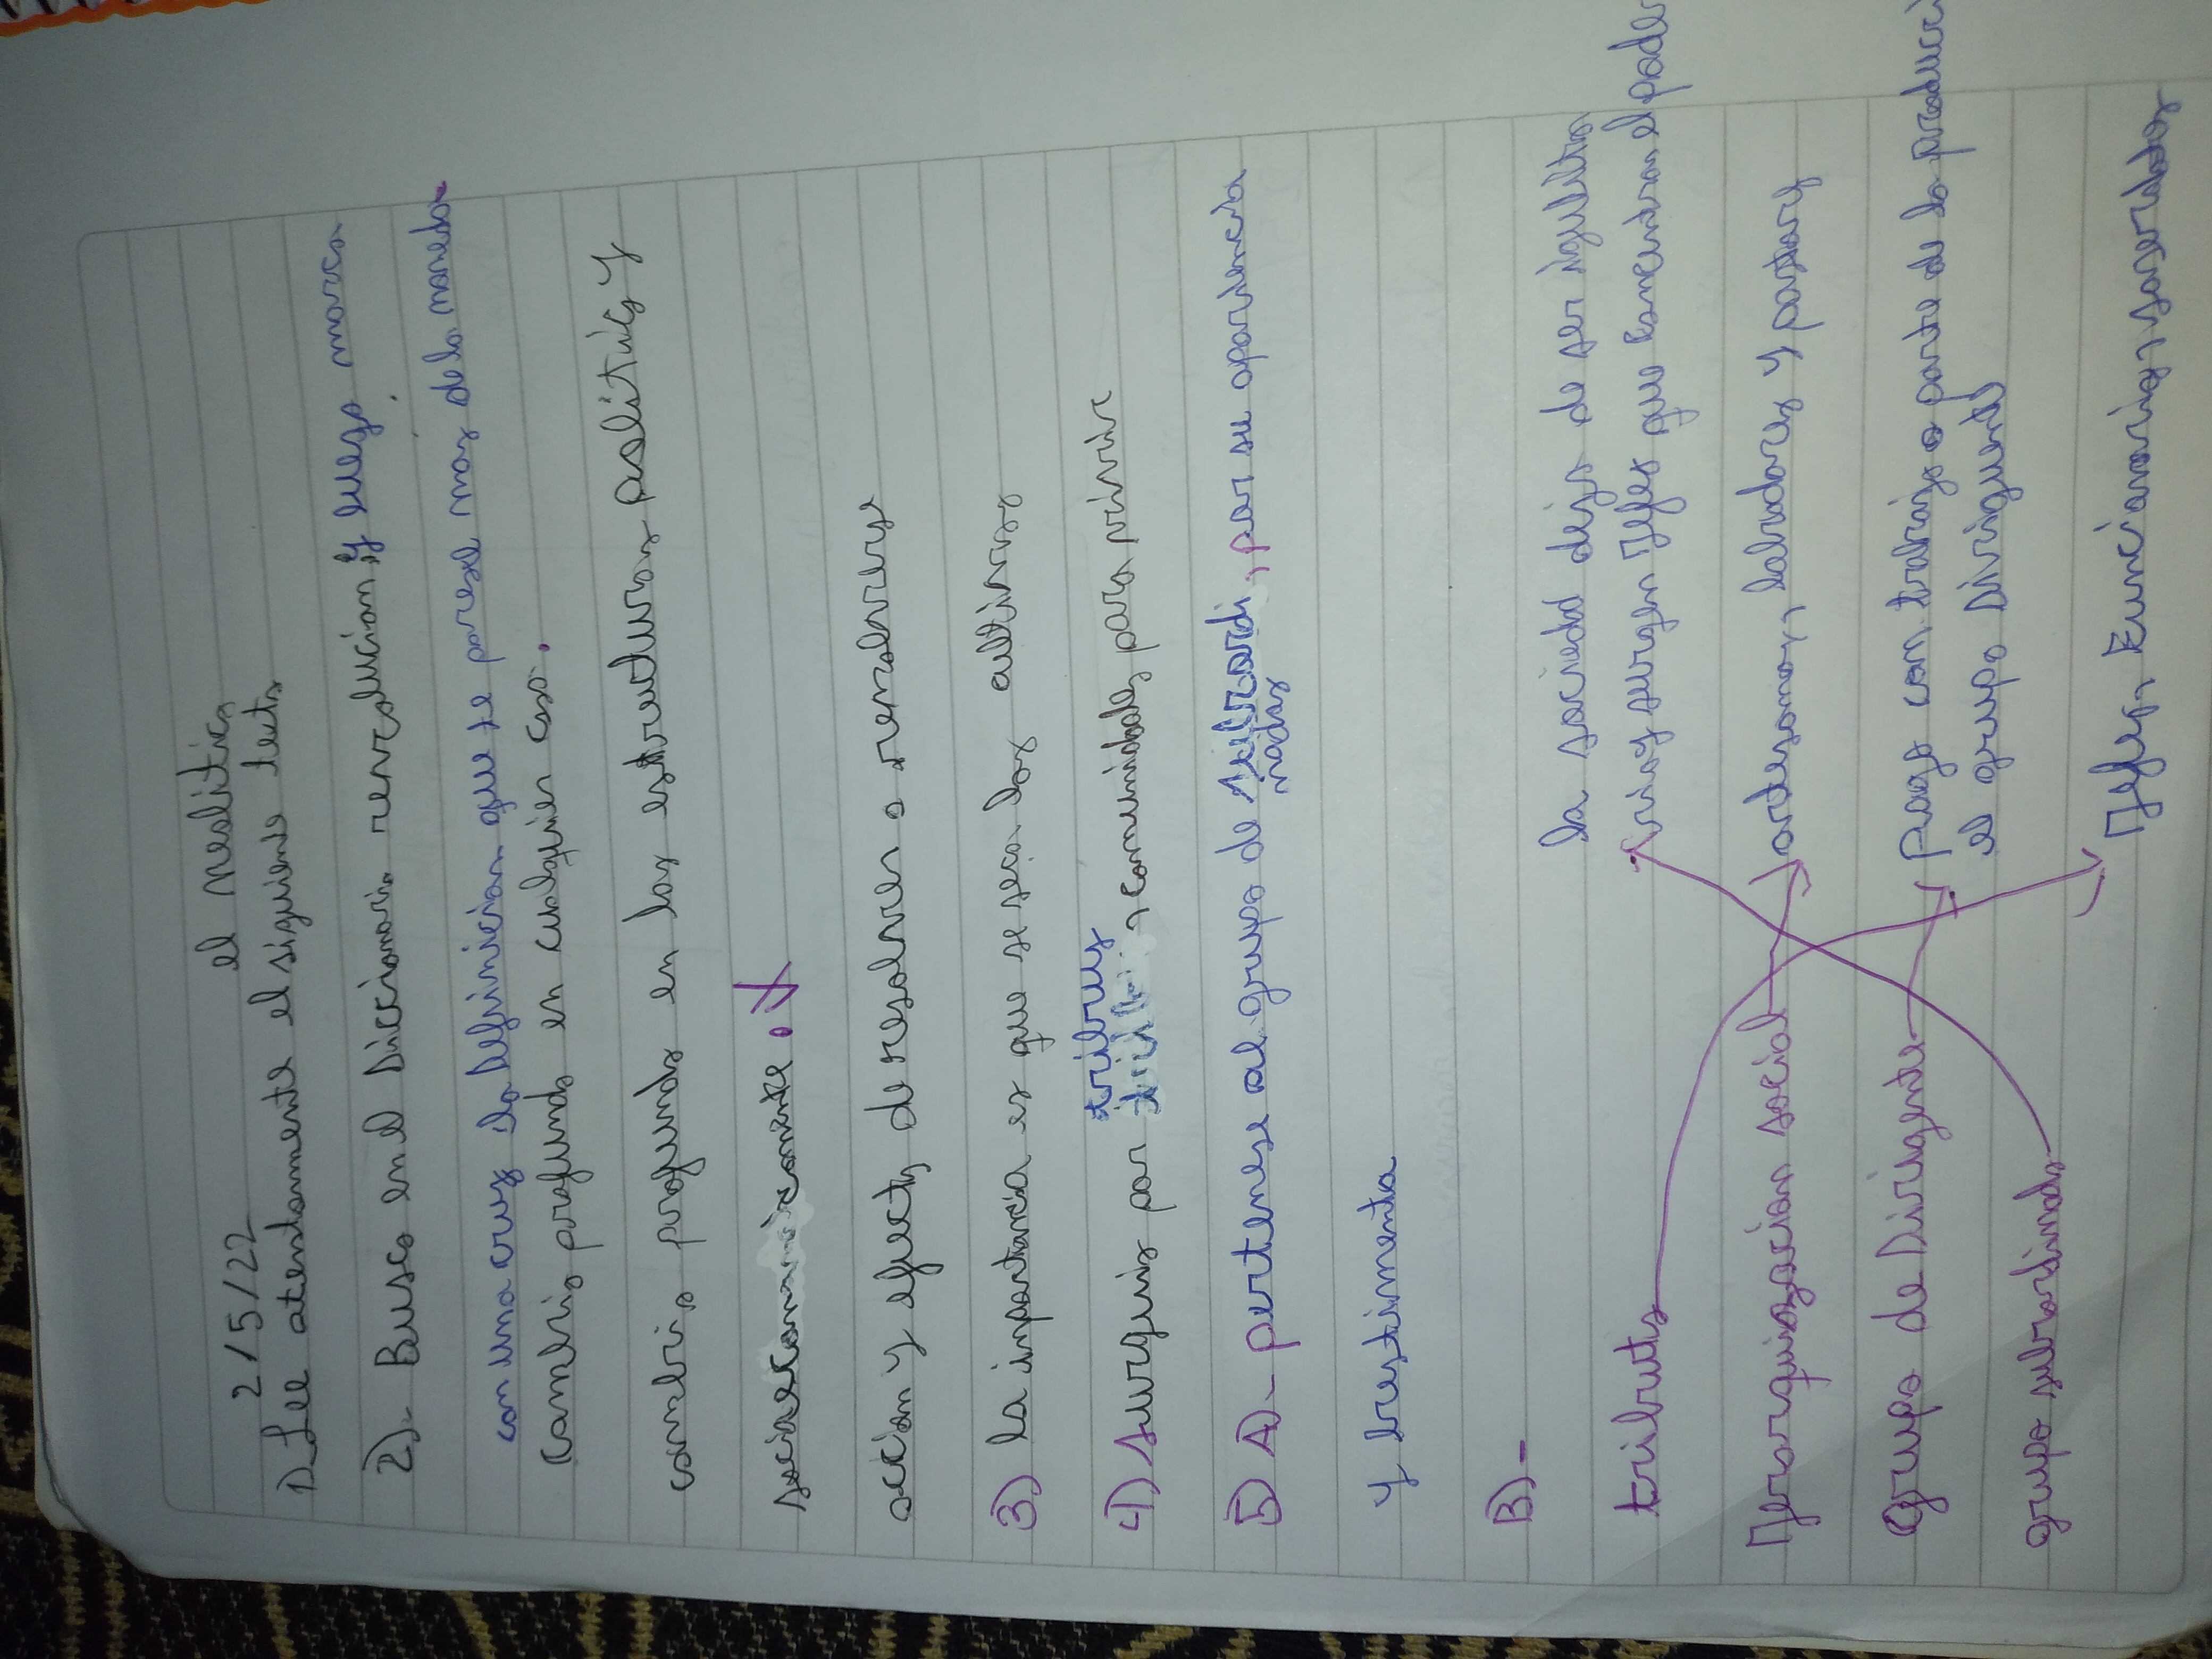 2/5/22 el neolitico
1) Lee atentamente el siguiente texto
2)- Busca en el Diccionario revolucion y luego marca
con una cruz la definicion que te parese mas de la moneda
Cambio profundo en cualquier caso.
cambio profundo en las estructuras politicas y
socioeconomicamente. X
accion y efecto de resolver o remolverse
3) la importancia es que se seca los cultivos
4) surguio por tribus, comunidades para vivir
5) A)- pertenese al grupo de subordi, por su apariencia
nados
y vestimenta
B)-
la sociedad dejo de ser igualita
ria y surgen Jefes que concentran el poder
tributo
Jerarquizacion social
artesanos, labradores y pastores
Grupo de Dirigente
pago con trabajo o parte de la producci
el grupo Dirigente
grupo subordinado
Jefes, Funcionarios, sacerdotes